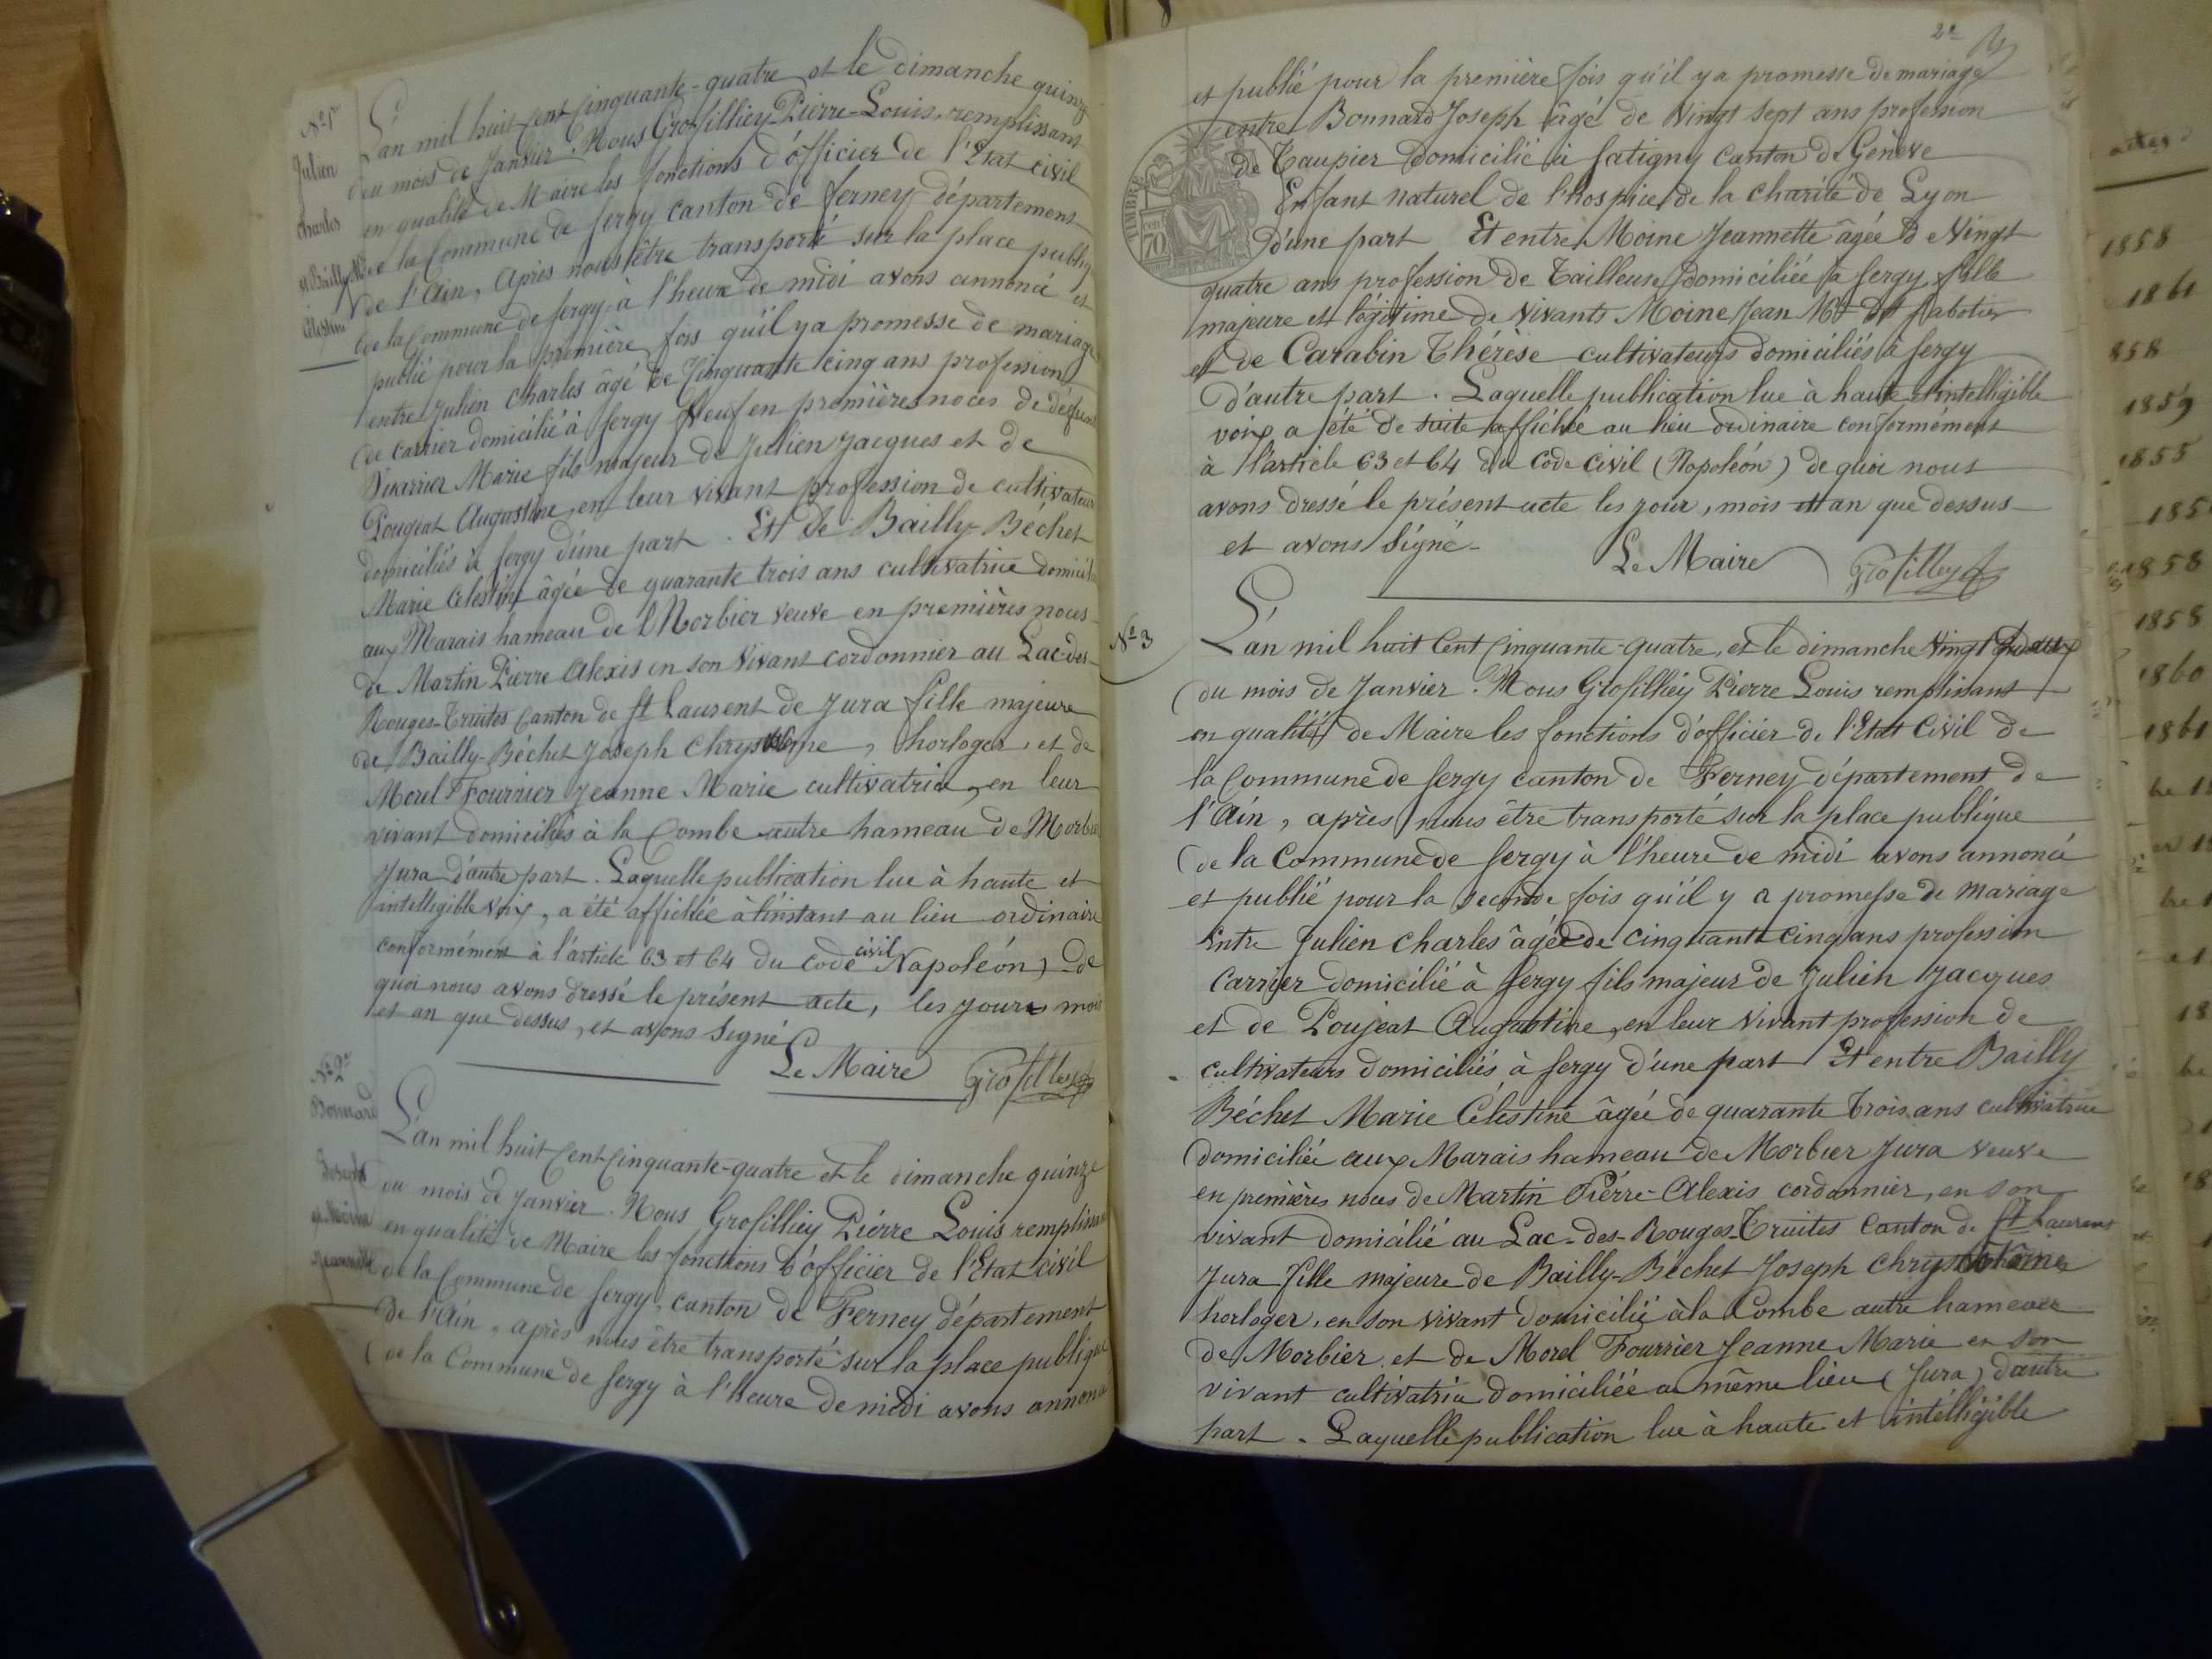 Nº 1er
Julien
Charles
et Bailly
Célestine
L'an mil huit cent cinquante-quatre et le dimanche quinze
du mois de Janvier. Nous Grosilliey Pierre-Louis, remplissant
en qualité de Maire les fonctions d'officier de l'Etat civil
de la Commune de Sergy canton de ferney département
de l'Ain, Après nous être transporté sur la place publiq
de la Commune de Sergy, à l'heure de midi avons annoncé et
publié pour la première fois qu'il y a promesse de mariage
entre Julien Charles âgé de Cinquante cinq ans profession
de carrier domicilié à Sergy Veuf en premières noces de défun
Vuarrier Marie fils majeur de Julien Jacques et de
Pougeat Augustine, en leur vivant profession de cultivateur
domiciliés à Sergy d'une part. Et de Bailly-Béchet
Marie Célestine âgée de quarante trois ans cultivatrice domicili
aux Marais hameau de Morbier veuve en premières noces
de Martin Pierre Alexis en son Vivant cordonnier au Lac-des-
Rouges-Truites Canton de St Laurent de Jura fille majeure
de Bailly-Béchet Joseph Chrysostôme, horloger, et de
Morel Fourrier Jeanne Marie cultivatrice, en leur
vivant domiciliés à la Combe autre hameau de Morbie
Jura d'autre part. Laquelle publication lue à haute et
intelligible voix, a été affichée à l'instant au lieu ordinaire
conformément à l'article 63 et 64 du code civil Napoléon) de
quoi nous avons dressé le présent acte, les jours mois
et an que dessus, et avons Signé
Le Maire Grosilley
Nº 2e
Bonnard
Joseph
et Moine
Jeannette
L'an mil huit Cent Cinquante-quatre et le dimanche quinze
du mois de Janvier. Nous Grosilliey Pierre Louis remplissan
en qualité de Maire les fonctions d'officier de l'Etat civil
de la Commune de Sergy, canton de Ferney département
de l'Ain, après nous être transporté sur la place publique
de la Commune de Sergy à l'heure de midi avons annoncé
2e
et publié pour la première fois qu'il y a promesse de mariage
entre Bonnard Joseph âgé de Vingt sept ans profession
de Taupier domicilié à Satigny Canton de Genève
Enfant naturel de l'hospice de la charité de Lyon
d'une part Et entre Moine Jeannette âgée de Vingt
quatre ans profession de Tailleuse domiciliée à Sergy fille
majeure et légitime de Vivants Moine Jean Sabotier
et de Carabin Thérèse cultivateurs domiciliés à Sergy
d'autre part. Laquelle publication lue à haute et intelligible
voix a été de suite affichée au lieu ordinaire conformément
à l'article 63 et 64 du Code civil (Napoléon) de quoi nous
avons dressé le présent acte les jour, mois et an que dessus
et avons Signé
Le Maire Grosilley
TIMBRE
70
Nº 3
L'an mil huit Cent Cinquante-quatre, et le dimanche Vingt deux
du mois de Janvier. Nous Grosilliey Pierre Louis remplissant
en qualité de Maire les fonctions d'officier de l'Etat Civil de
la Commune de Sergy canton de Ferney département de
l'Ain, après nous être transporté sur la place publique
de la Commune de Sergy à l'heure de midi avons annoncé
et publié pour la seconde fois qu'il y a promesse de mariage
Entre Julien Charles âgé de cinquante cinq ans profession
Carrier domicilié à Sergy fils majeur de Julien Jacques
et de Poujeat Augustine, en leur Vivant profession de
cultivateurs domiciliés à Sergy d'une part Et entre Bailly
Béchet Marie Célestine âgée de quarante Trois ans cultivatrice
domiciliée aux Marais hameau de Morbier Jura veuve
en premières noces de Martin Pierre-Alexis cordonnier, en son
vivant domicilié au Lac-des-Rouges-Truites Canton de St Laurent
Jura fille majeure de Bailly-Béchet Joseph Chrysostôme
horloger, en son vivant domicilié à la Combe autre hameau
de Morbier et de Morel Fourrier Jeanne Marie en son
vivant cultivatrice domiciliée au même lieu (Jura) d'autre
part. Laquelle publication lue à haute et intelligible
1858
1861
858
1859
1855
185
1858
1858
1860
1861